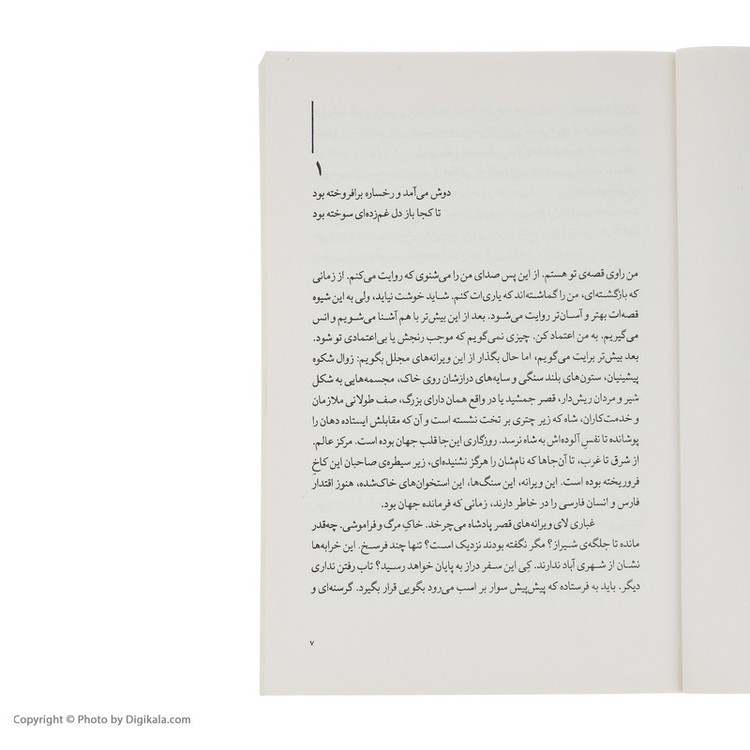 ۱
دوش می‌آمد و رخساره برافروخته بود
تا کجا باز دل غم‌زده‌ای سوخته بود
من راوی قصه‌ی تو هستم. از این پس صدای من را می‌شنوی که روایت می‌کنم. از زمانی
که بازگشته‌ای، من را گماشته‌اند که یاری‌ات کنم. شاید خوشت نیاید، ولی به این شیوه
قصه‌ات بهتر و آسان‌تر روایت می‌شود. بعد از این بیش‌تر با هم آشنا می‌شویم و انس
می‌گیریم. به من اعتماد کن. چیزی نمی‌گویم که موجب رنجش یا بی‌اعتمادی تو شود.
بعد بیش‌تر برایت می‌گویم، اما حال بگذار از این ویرانه‌های مجلل بگویم: زوال شکوه
پیشینیان، ستون‌های بلند سنگی و سایه‌های درازشان روی خاک، مجسمه‌هایی به شکل
شیر و مردان ریش‌دار، قصر جمشید یا در واقع همان دارای بزرگ، صف طولانی ملازمان
و خدمت‌کاران، شاه که زیر چتری بر تخت نشسته است و آن که مقابلش ایستاده دهان را
پوشانده تا نفسِ آلوده‌اش به شاه نرسد. روزگاری این‌جا قلب جهان بوده است. مرکز عالم.
از شرق تا غرب، تا آن‌جاها که نام‌شان را هرگز نشنیده‌ای، زیر سیطره‌ی صاحبان این کاخِ
فروریخته بوده است. این ویرانه، این سنگ‌ها، این استخوان‌های خاک‌شده، هنوز اقتدار
فارس و انسان فارسی را در خاطر دارند، زمانی که فرمانده جهان بود.
غباری لای ویرانه‌های قصر پادشاه می‌چرخد. خاک مرگ و فراموشی. چه‌قدر
مانده تا جلگه‌ی شیراز؟ مگر نگفته بودند نزدیک است؟ تنها چند فرسخ. این خرابه‌ها
نشان از شهری آباد ندارند. کِی این سفر دراز به پایان خواهد رسید؟ تاب رفتن نداری
دیگر. باید به فرستاده که پیش‌پیش سوار بر اسب می‌رود بگویی قرار بگیرد. گرسنه‌ای و
۷
Copyright © Photo by Digikala.com